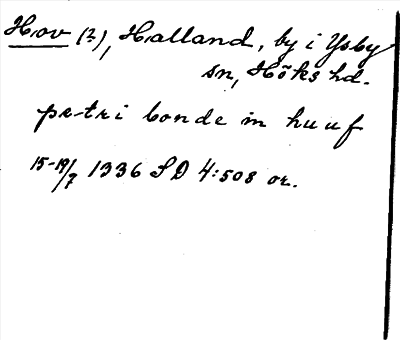 Hov (?), Halland, by i Ysby
sn, Höks hd.
petri bonde in huuf
15-19/7 1336 SD 4:508 or.